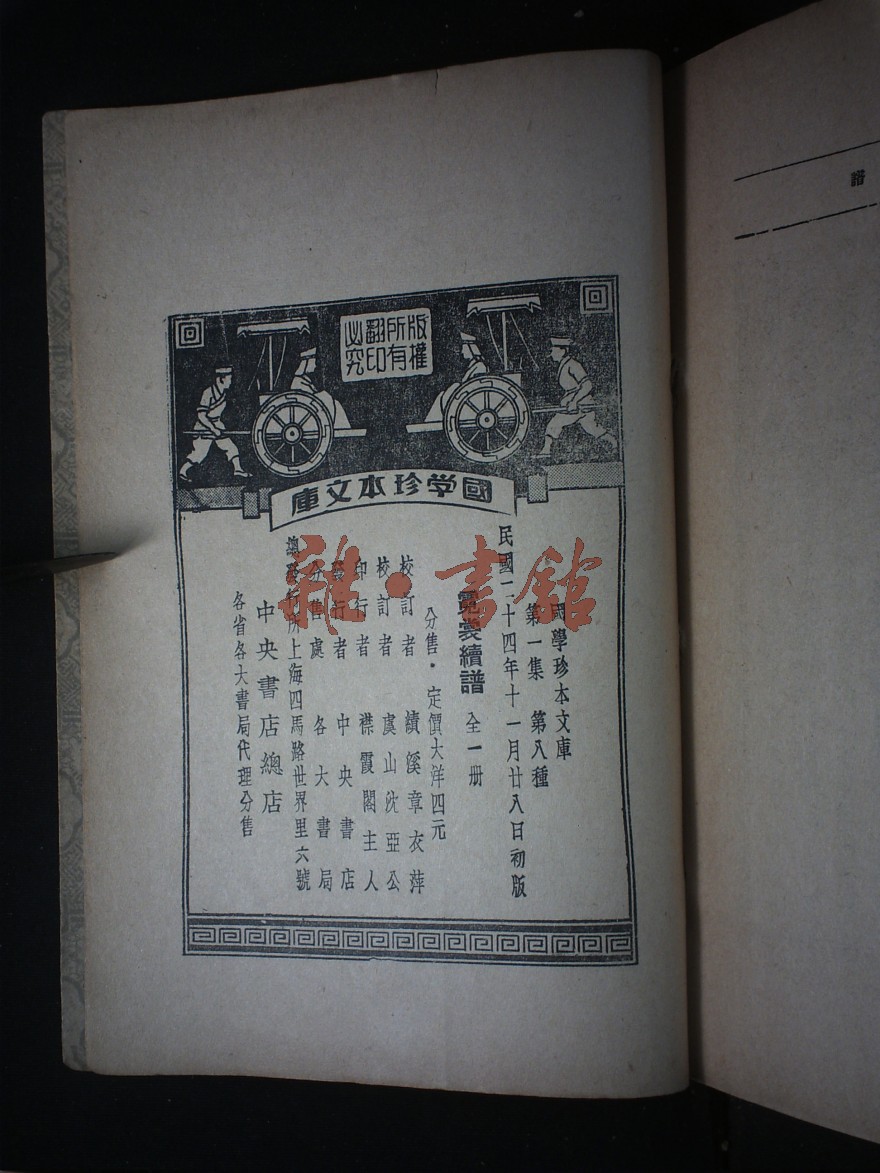 版權
所有
翻印
必究
國学珍本文庫
國學珍本文庫
第一集 第八種
民國二十四年十一月廿八日初版
霓裳續譜 全一册
分售·定價大洋四元
校訂者 績溪章衣萍
校訂者 虞山沈亞公
印行者 襟霞閣主人
發行者 中央書店
分售處 各大書局
總發行所上海四馬路世界里六號
中央書店總店
各省各大書局代理分售
雜·書館